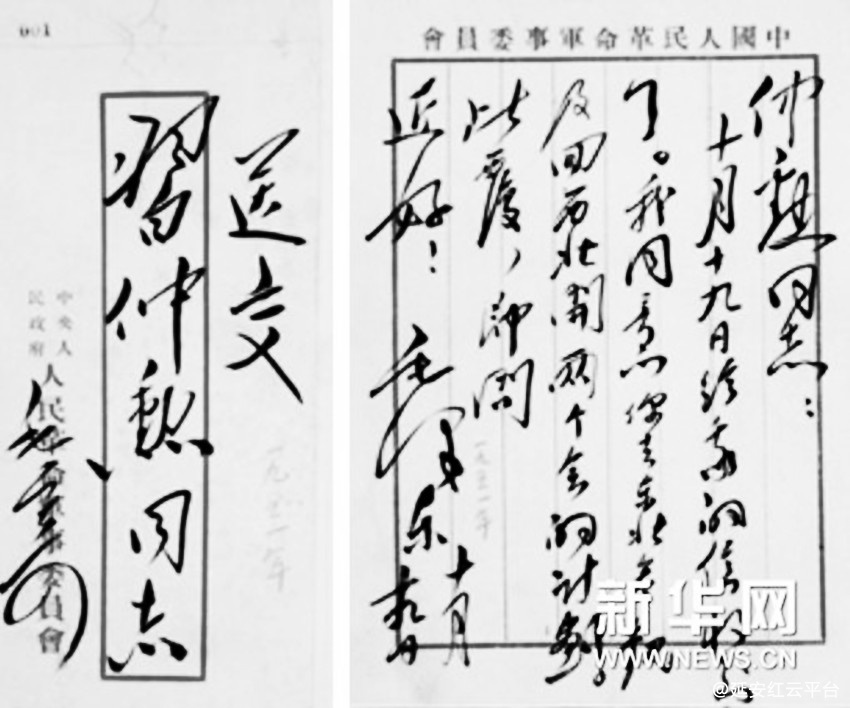 001
送交
習仲勲同志
中央人
民政府
人民革命軍事委員會
一九五一年
中國人民革命軍事委員會
仲勲同志：
十月十九日给我的信收到
了。我同意你去东北参观
及回西北開两个会的計劃。
此覆，即問
近好！
毛泽东
十月
一九五一年
新华网
WWW.NEWS.CN
@延安红云平台